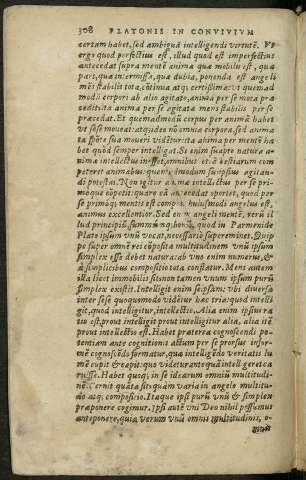 308 PLATONIS IN CONVIVIVM
certam habet, sed ambiguā intelligendi virtutē. Vt
ergo quod perfectius est, illud quod est imperfectius
antecedat supra mentē animæ quæ mobilis est, quæ
pars, quæ intermissa, quæ dubia, ponenda est angeli
mēs stabilis tota, cōtinua atq; certissima: vt quemad
modū corpori ab alio agitato, anima per se mota præ
cedit: ita animæ per se agitatæ mens stabilis per se
præcedat. Et quemadmodū corpus per animā habet
vt se se moueat: atq; ideo nō omnia corpora, sed anima
ta spōte sua moueri vidētur: ita anima per mentē ha
bet quòd semper intelligat. Si enim suapte natura a-
nimæ intellectus inesset, omnibus etiā bestiarum com
peteret animabus: quemadmodum suiipsius agitan-
di potestas. Non igitur animæ intellectus per se pri-
moque cōpetit: quare eā antecedat oportet, quod per
se primóq; mentis est compos, huiusmodi angelus est,
animis excellentior. Sed enim angeli mentē, rerū il
lud principiū, summūq; bonū, quod in Parmenide
Plato ipsum vnū vocat, necessario supereminet. Quip
pe super omnē rei cōposita multitudinem vnū ipsum
simplex esse debet natura: ab vno enim numerus, &
à simplicibus compositio tota constat. Mens autem
illa licet immobilis sit, non tamen vnum ipsum purū
simplex existit. Intelligit enim seipsum: vbi diuersa
inter sese quoquomodo vidētur hæc tria: quod intelli
git, quod intelligitur, intellectio. Alia enim ipsius ra
tio est, prout intelligit: prout intelligitur alia, alia itē
prout intellectio est. Habet præterea cognoscendi po-
tentiam ante cognitionis actum per se prorsus infor-
mē: cognoscēdo formatur, quæ intelligēdo veritatis lu
mē cupit & capit: quo videtur ante quā intelligeret ca
ruisse. Habet quoq; in se idearum omniū multitudi-
nē. Cernis quāta sit: quàm varia in angelo multitu-
do atq; compositio. Itaque ipsi purū vnū & simplex
præponere cogimur. Ipsi autē vni Deo nihil possumus
anteponere, quia verum vnū omnis multitudinis, o-